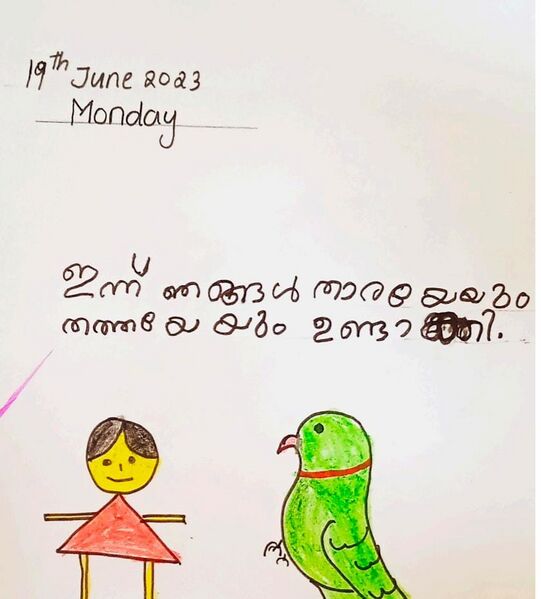 19th June 2023
Monday
ഇന്ന് ഞങ്ങൾ താരയേയും
തത്തയേയും ഉണ്ടാക്കി.